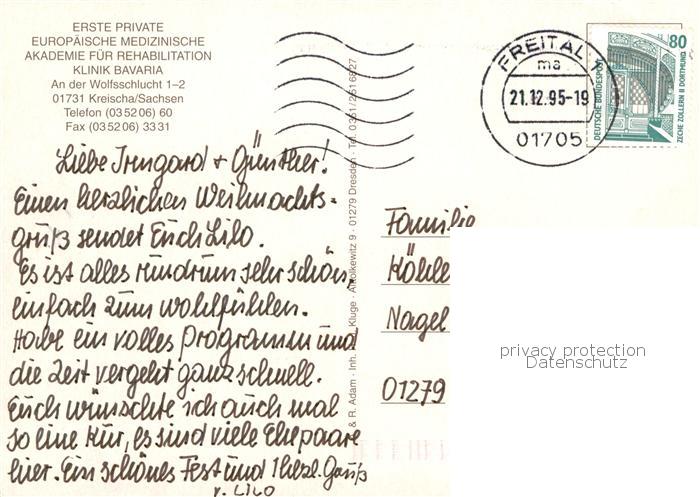 ERSTE PRIVATE
EUROPÄISCHE MEDIZINISCHE
AKADEMIE FÜR REHABILITATION
KLINIK BAVARIA
An der Wolfsschlucht 1–2
01731 Kreischa/Sachsen
Telefon (03 52 06) 60
Fax (03 52 06) 33 31
FREITAL
ma
21.12.95-19
01705
80
DEUTSCHE BUNDESPOST
ZECHE ZOLLERN II DORTMUND
Liebe Irmgard + Günther!
Einen herzlichen Weihnachts-
gruß sendet Euch Lilo.
Es ist alles rundrum sehr schön,
einfach zum wohlfühlen.
Habe ein volles Programm und
die Zeit vergeht ganz schnell.
Euch wünschte ich auch mal
so eine Kur, es sind viele Ehepaare
hier. Ein schönes Fest und 1 herzl. Gruß
v. LILO
& R. Adam · Inh. Kluge · Altolkewitz 9 · 01279 Dresden · Tel. 0351/2516827
Familie
Köhle
Nagel
01279
privacy protection
Datenschutz